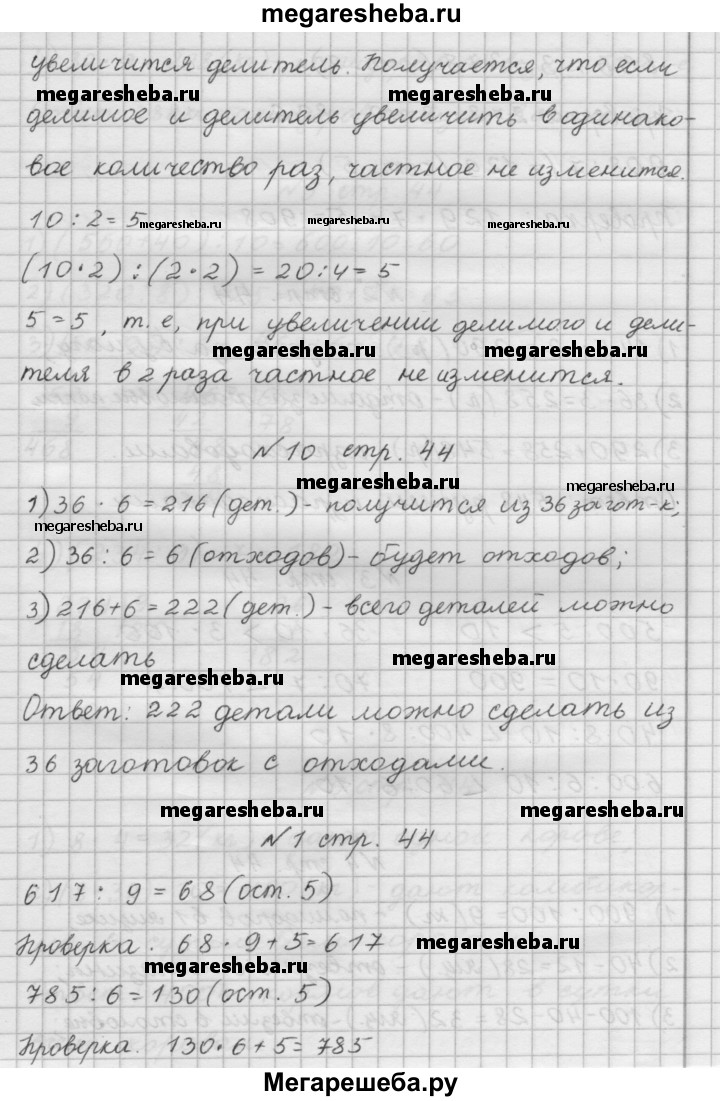 megaresheba.ru
увеличится делитель. Получается, что если
megaresheba.ru megaresheba.ru
делимое и делитель увеличить в одинако-
вое количество раз, частное не изменится.
10 : 2 = 5 megaresheba.ru megaresheba.ru megaresheba.ru
(10·2) : (2·2) = 20:4 = 5
5 = 5, т. е, при увеличении делимого и дели-
megaresheba.ru megaresheba.ru
теля в 2 раза частное не изменится.
№10 стр. 44
megaresheba.ru
1) 36 · 6 = 216 (дет.) - получится из 36 загот-к;
megaresheba.ru megaresheba.ru
2) 36 : 6 = 6 (отходов) - будет отходов;
3) 216+6 = 222 (дет.) - всего деталей можно
сделать megaresheba.ru
megaresheba.ru
Ответ: 222 детали можно сделать из
36 заготовок с отходами.
megaresheba.ru megaresheba.ru
№1 стр. 44
617 : 9 = 68 (ост. 5)
Проверка. 68 · 9 + 5 = 617 megaresheba.ru
megaresheba.ru
785 : 6 = 130 (ост. 5)
Проверка. 130 · 6 + 5 = 785
Мегарешеба.ру